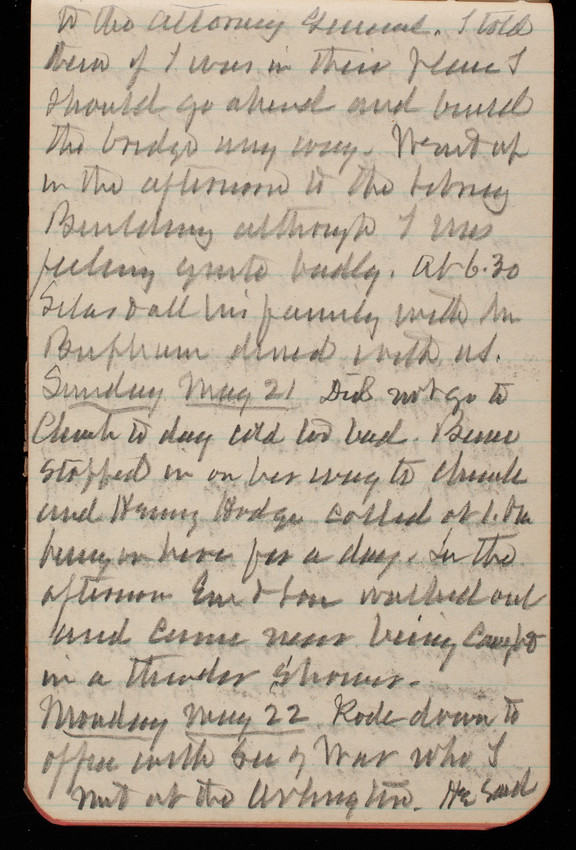 to the Attorney General. I told
them if I was in their place I
should go ahead and build
the bridge any way. Went up
in the afternoon to the Library
Building although I was
feeling quite badly. At 6.30
Silas & all his family with Mr
dined with us.
Sunday May 21 Did not go to
Church to day cold too bad.
stopped in on her way to church
and Henry Hodge called at 1. he
being on here for a day. In the
afternoon & walked out
and came near being caught
in a thunder shower.
Monday May 22 Rode down to
office with Sec of War who I
met at the Arlington. He said